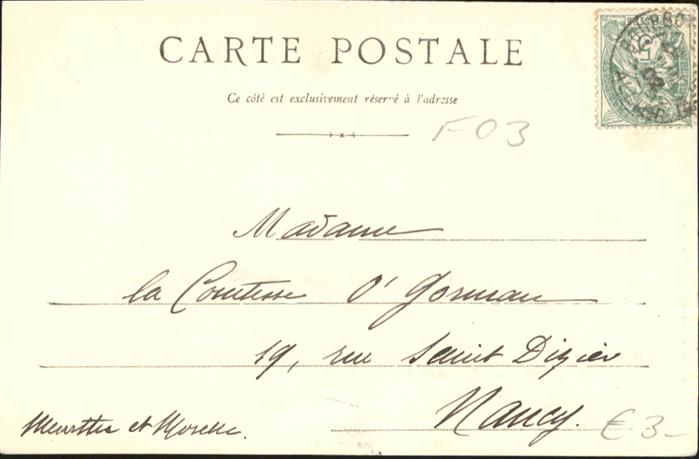 CARTE POSTALE
Ce côté est exclusivement réservé à l'adresse
F03
Madame
la Comtesse O'Gorman
19, rue Saint Dizier
Nancy.
Meurthe et Moselle.
€3-